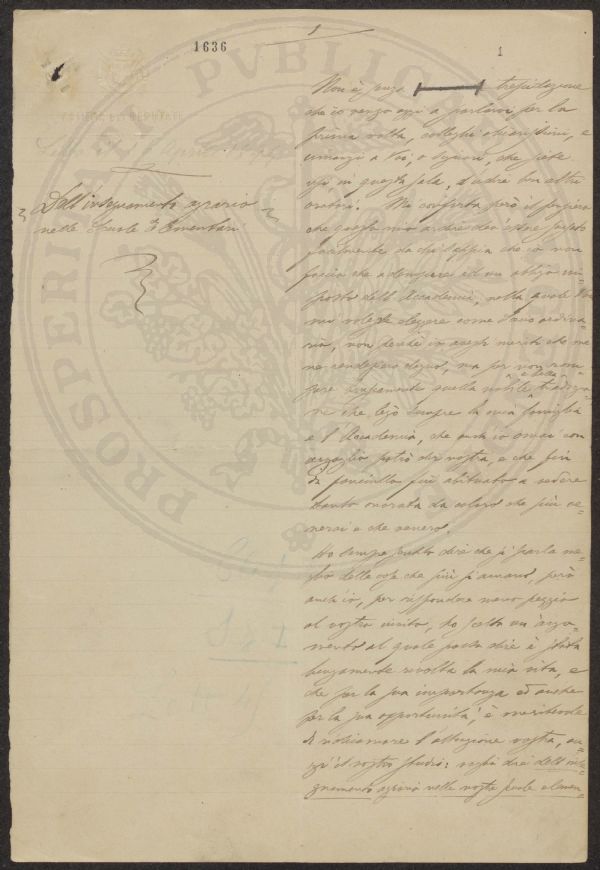 1636
1
1
PROSPERITATI PUBLICAE
CAMERA DEI DEPUTATI
Dell'insegnamento agrario
nelle Scuole Elementari
Non è senza trepidazione
che io vengo oggi a parlarvi per la
prima volta, colleghi chiarissimi, e
innanzi a Voi, o Signori, che siete
usi, in questa sala, d'udire ben altri
oratori. Mi conforta però il pensiero
che questo mio ardire dev'essere
facilmente da chi sappia che io non
faccio che adempiere ad un obbligo im=
posto dall'Accademia, nella quale
mi voleste eleggere come socio ordina=
rio, non perché io avessi meriti che me
ne rendessero degno, ma per non
quella nobile e bella tradizio=
ne che legò sempre la mia famiglia
e l'Accademia, che anch'io ormai con
orgoglio potrò dir nostra, e che fin
da fanciullo fui abituato a vedere
tanto onorata da coloro che più ve=
nerai e che venero.
Ho sempre sentito dire che si parla me=
glio delle cose che più si amano, però
anch'io, per rispondere meno peggio
al vostro invito, ho scelto un argo=
mento al quale posso dire è stata
lungamente rivolta la mia vita, e
che per la sua importanza ed anche
per la sua opportunità, è meritevole
di richiamare l'attenzione vostra, an=
zi il vostro studio: voglio dire dell'inse=
gnamento agrario nelle nostre scuole elemen=